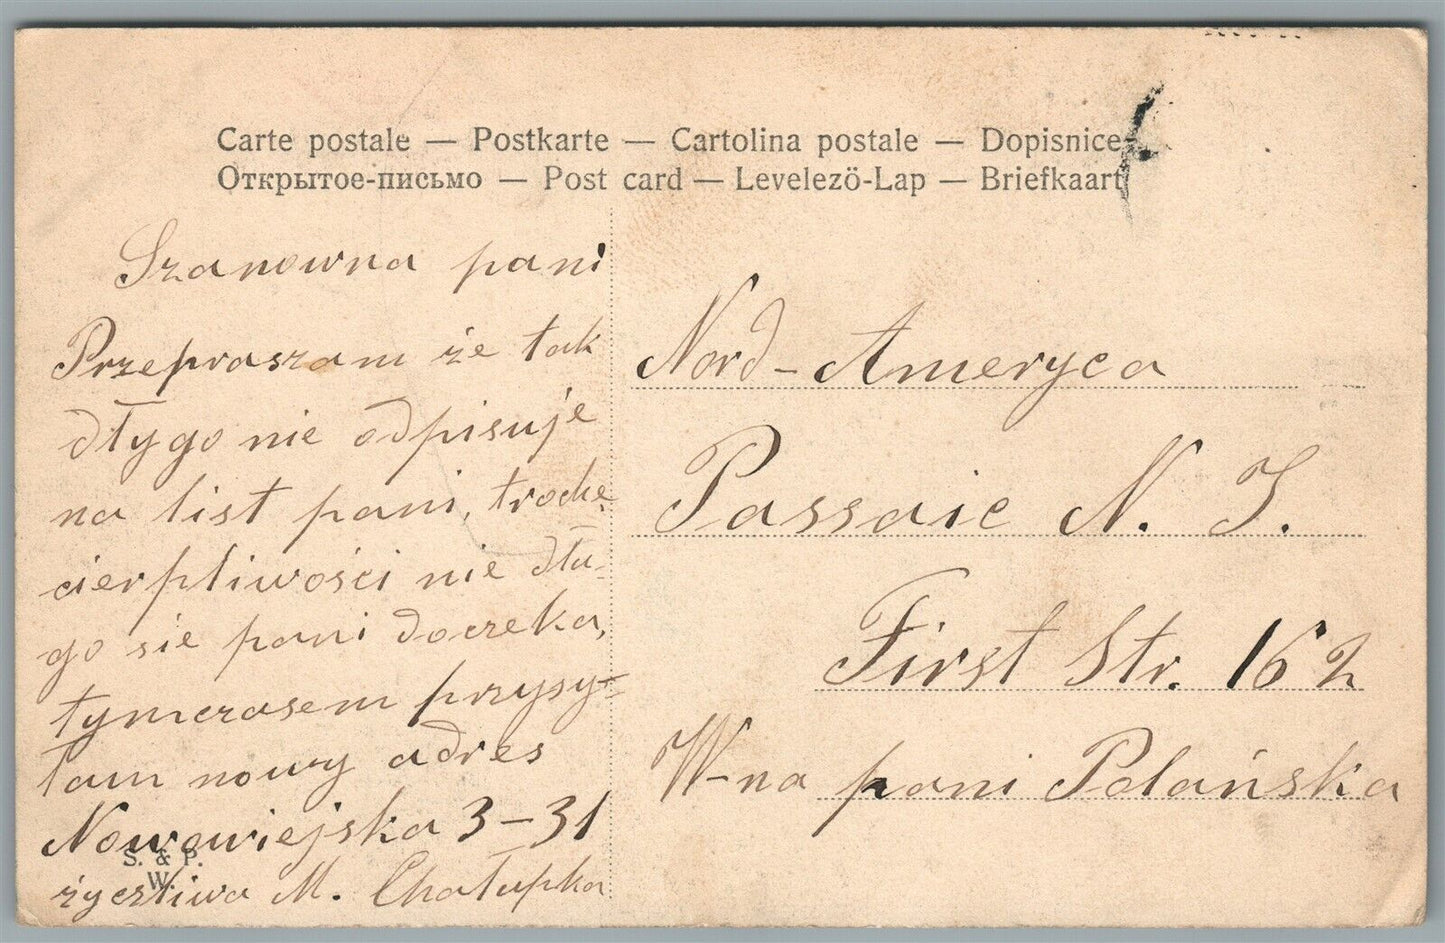 Carte postale — Postkarte — Cartolina postale — Dopisnice
Открытое-письмо — Post card — Levelezö-Lap — Briefkaart
Szanowna pani
Przepraszam że tak
długo nie odpisuje
na list pani, trochę
cierpliwości nie dłu-
go sie pani doczeka,
tymczasem przysy-
łam nowy adres
Nowowiejska 3-31
życzliwa M. Chałupka
S. & P.
W.
Nord-Ameryca
Passaic N. J.
First Str. 162
W-na pani Polańska